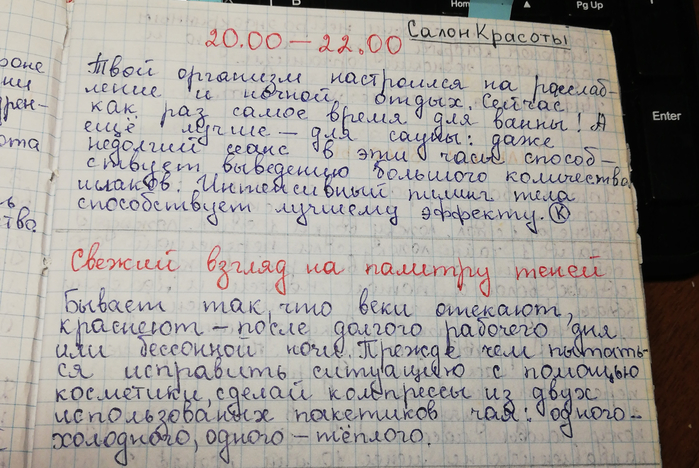 Home
Pg Up
Enter
роне
рен-
ота
ь
ства
Салон Красоты
20.00 – 22.00
Твой организм настроился на расслаб-
ление и ночной отдых. Сейчас
как раз самое время для ванны! А
ещё лучше – для сауны: даже
недолгий сеанс в эти часы способ-
ствует выведению большого количества
шлаков. Интенсивный пилинг тела
способствует лучшему эффекту. К
Свежий взгляд на палитру теней
Бывает так, что веки отекают,
краснеют – после долгого рабочего дня
или бессонной ночи. Прежде чем пытать-
ся исправить ситуацию с помощью
косметики, сделай компрессы из двух
использованых пакетиков чая: одного –
холодного, одного – тёплого.